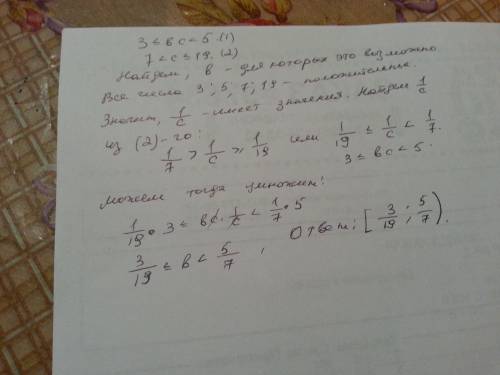 3 ≤ вс < 5 (1)
7 < с ≤ 19. (2)
Найдем, в - для которых это возможно.
Все числа 3; 5; 7; 19 - положительные.
Значит, 1/с - имеет значения. Найдем 1/с
из (2)-го:
1/7 > 1/с ≥ 1/19 или 1/19 ≤ 1/с < 1/7.
3 ≤ вс < 5.
Можем тогда умножим:
1/19 • 3 ≤ вс • 1/с < 1/7 • 5
3/19 ≤ в < 5/7, Ответ: [3/19; 5/7).